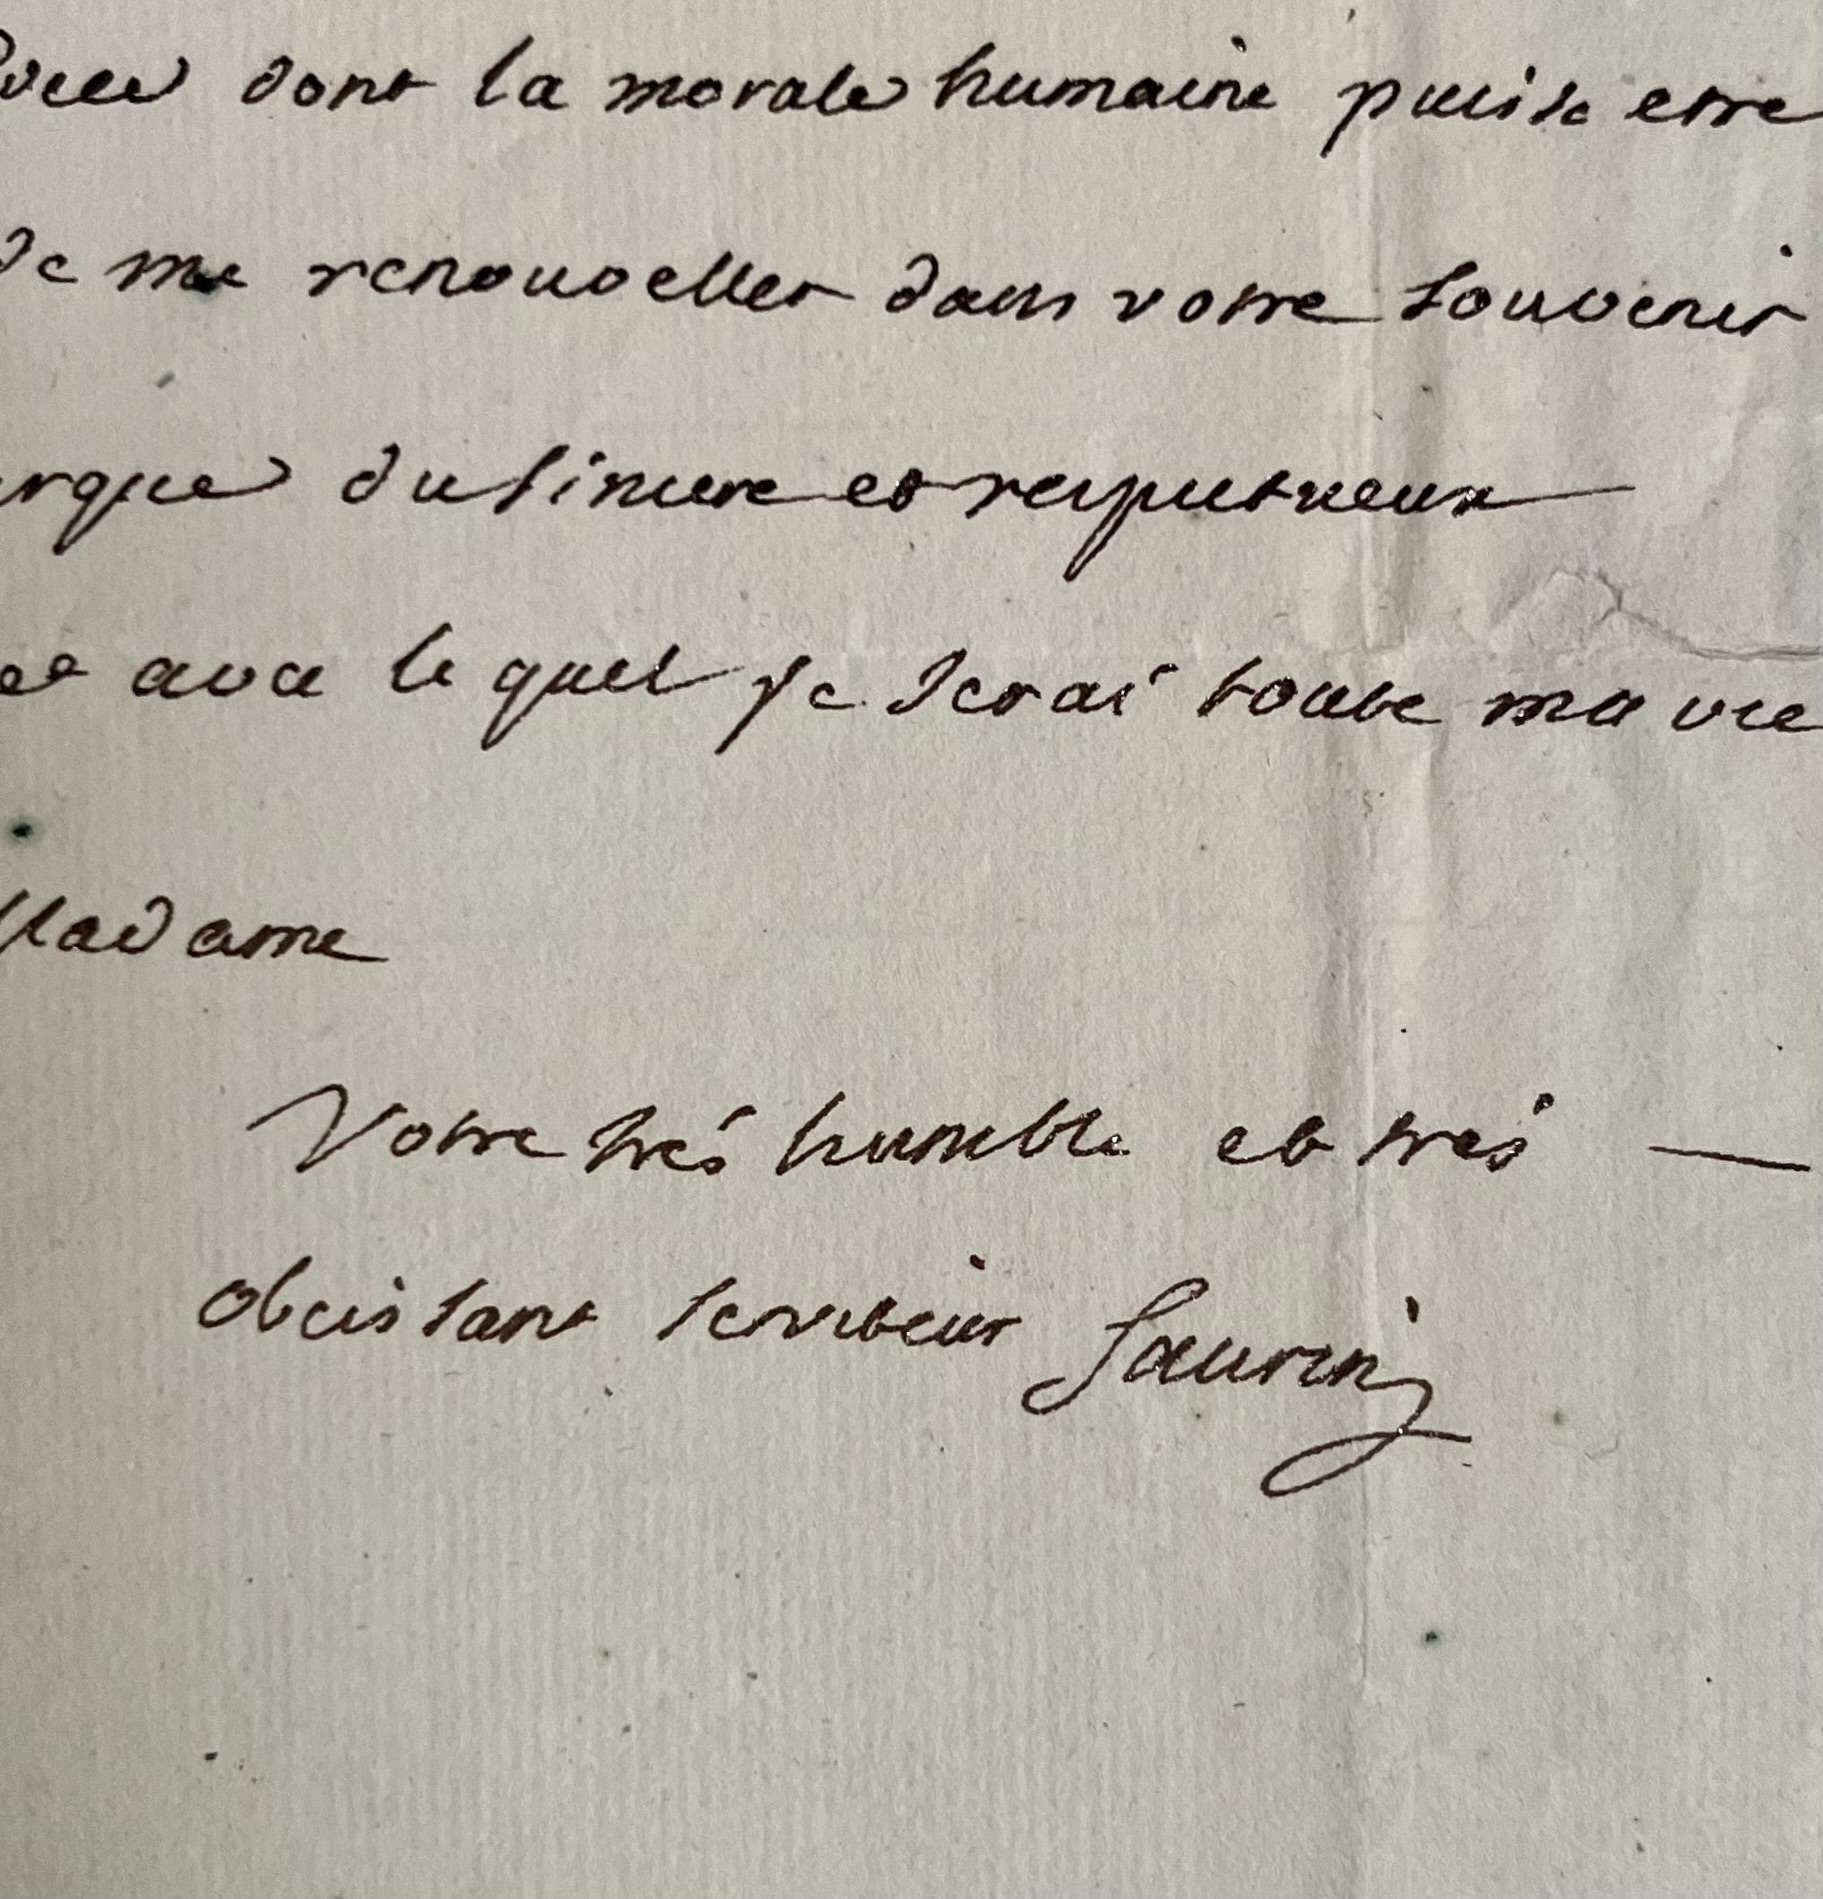 dont la morale humaine puisse estre
de me renouveller dans votre souvenir
du sincere et respectueux
avec le quel je serai toute ma vie
Madame
Votre très humble et très —
obeissant serviteur Saurin